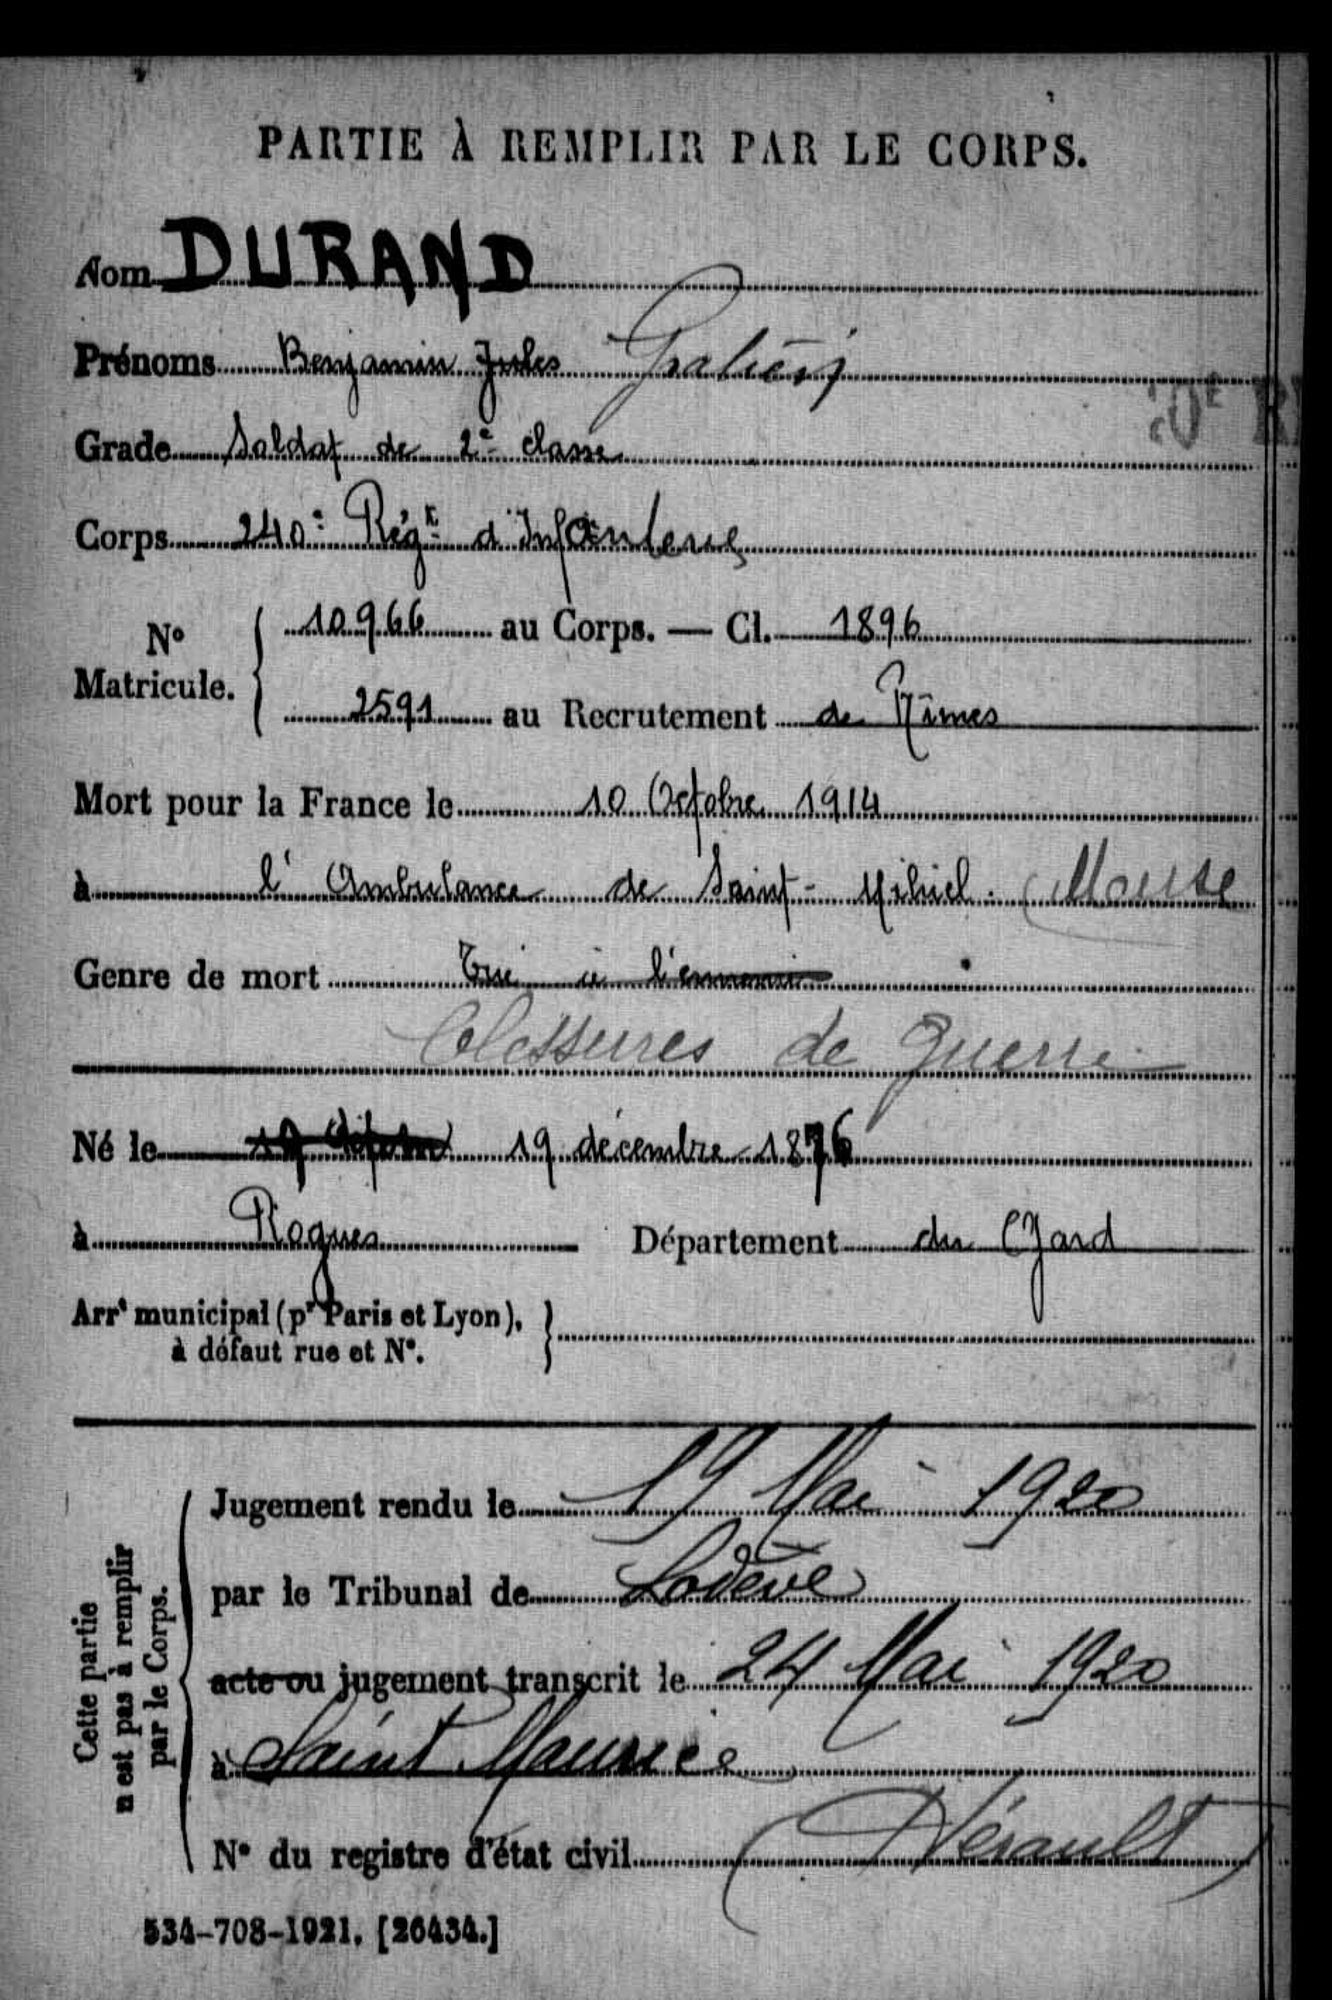 PARTIE À REMPLIR PAR LE CORPS.
Nom DURAND
Prénoms Benjamin Jules
Grade Soldat de 2e classe
Corps 240e Régt d'Infanterie
No Matricule. 10966 au Corps. — Cl. 1896
2591 au Recrutement de Nîmes
Mort pour la France le 10 Octobre 1914
à l'Ambulance de Saint-Mihiel. (Meuse
Genre de mort Tué à l'ennemi
blessures de guerre
Né le 19 Octobre 19 décembre 1876
à Rogues Département du Gard
Arrt municipal (pr Paris et Lyon),
à défaut rue et N°.
Cette partie
n'est pas à remplir
par le Corps.
Jugement rendu le 19 Mai 1920
par le Tribunal de Lodève
acte ou jugement transcrit le 24 Mai 1920
à Saint Maurice
N° du registre d'état civil (Hérault)
534-708-1921. [26434.]